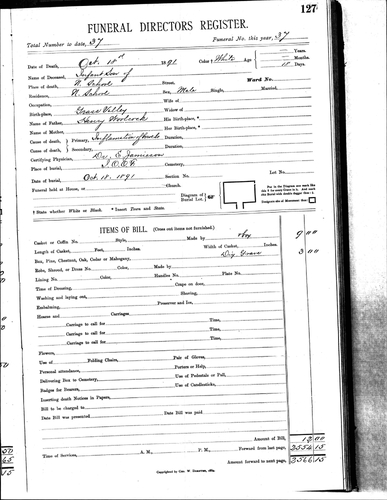 127
FUNERAL DIRECTORS REGISTER.
Total Number to date, 37 Funeral No. this year, 37
Date of Death, Oct. 18th 1891 Color † White Age — Years.
— Months.
18 Days.
Name of Deceased, Infant Son of Ward No.
Place of death, N. School Street,
Residence, N. School Sex, Male Single, Married,
Occupation, Wife of
Birthplace, Grass Valley Widow of
Name of Father, Henry His Birth-place, *
Name of Mother, Her Birth-place, *
Cause of death, Primary, Inflamation of Duration,
Cause of death, Secondary, Duration,
Certifying Physician, Dr. E. Jamieson
Place of burial, I.O.O.F. Cemetery,
Date of burial, Oct. 18. 1891 Section No. Lot No.
Funeral held at House, or Church.
Diagram of Burial Lot.
† State whether White or Black. * Insert Town and State.
ITEMS OF BILL. (Cross out items not furnished.)
Casket or Coffin No. Style, Made by Box 9 00
Length of Casket, Feet, Inches. Width of Casket, Inches.
Box, Pine, Chestnut, Oak, Cedar or Mahogany, Dig Grave 3 00
Robe, Shroud, or Dress No. Color, Made by
Lining No. Color, Handles No. Plate No.
Time of Dressing, Crape on door,
Washing and laying out, Shaving,
Embalming, Preserve and Ice,
Hearse and Carriages, Time,
Carriage to call for Time,
Carriage to call for Time,
Carriage to call for Time,
Flowers,
Use of Folding Chairs, Pair of Gloves,
Personal attendance, Porters or Help,
Delivering Box to Cemetery, Use of Pedestals or Pall,
Badges for Bearers, Use of Candlesticks,
Inserting death Notices in Papers,
Bill to be charged to
Date Bill was presented Date Bill was paid
Amount of Bill, 12 00
Forward from last page, 2554 15
Time of Services, A. M., P. M., Amount forward to next page, 2566 15